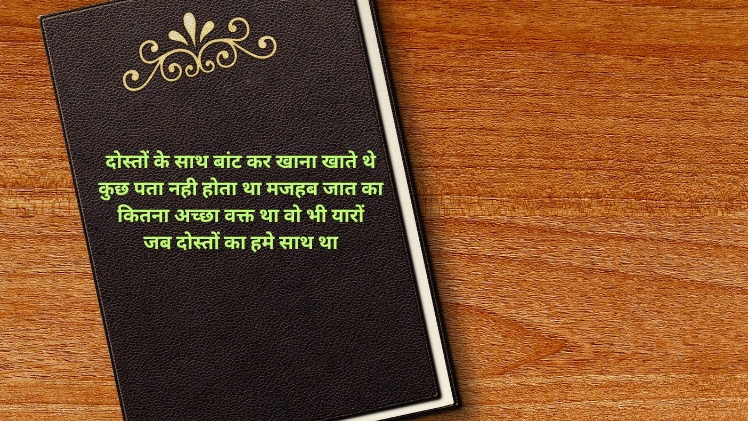 दोस्तों के साथ बांट कर खाना खाते थे
कुछ पता नही होता था मजहब जात का
कितना अच्छा वक्त था वो भी यारों
जब दोस्तों का हमे साथ था